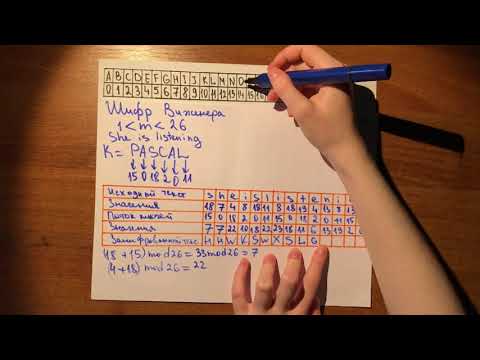 A B C D E F G H I J K L M N O
0 1 2 3 4 5 6 7 8 9 10 11 12 13 14 15 16
Шифр Виженера
1 < m < 26
She is listening
K = PASCAL
15 0 18 2 0 11
Исходный текст s h e i s l i s t e n i
Значения 18 7 4 8 18 11 8 18 19 4 13 8 13
Поток ключей 15 0 18 2 0 11 15 0 18 2 0 11 15
Значения 7 7 22 10 18 22 23 18 11 6 13
Зашифрованный текст H H W K S W X S L G
(18 + 15) mod 26 = 33 mod 26 = 7
(4 + 18) mod 26 = 22